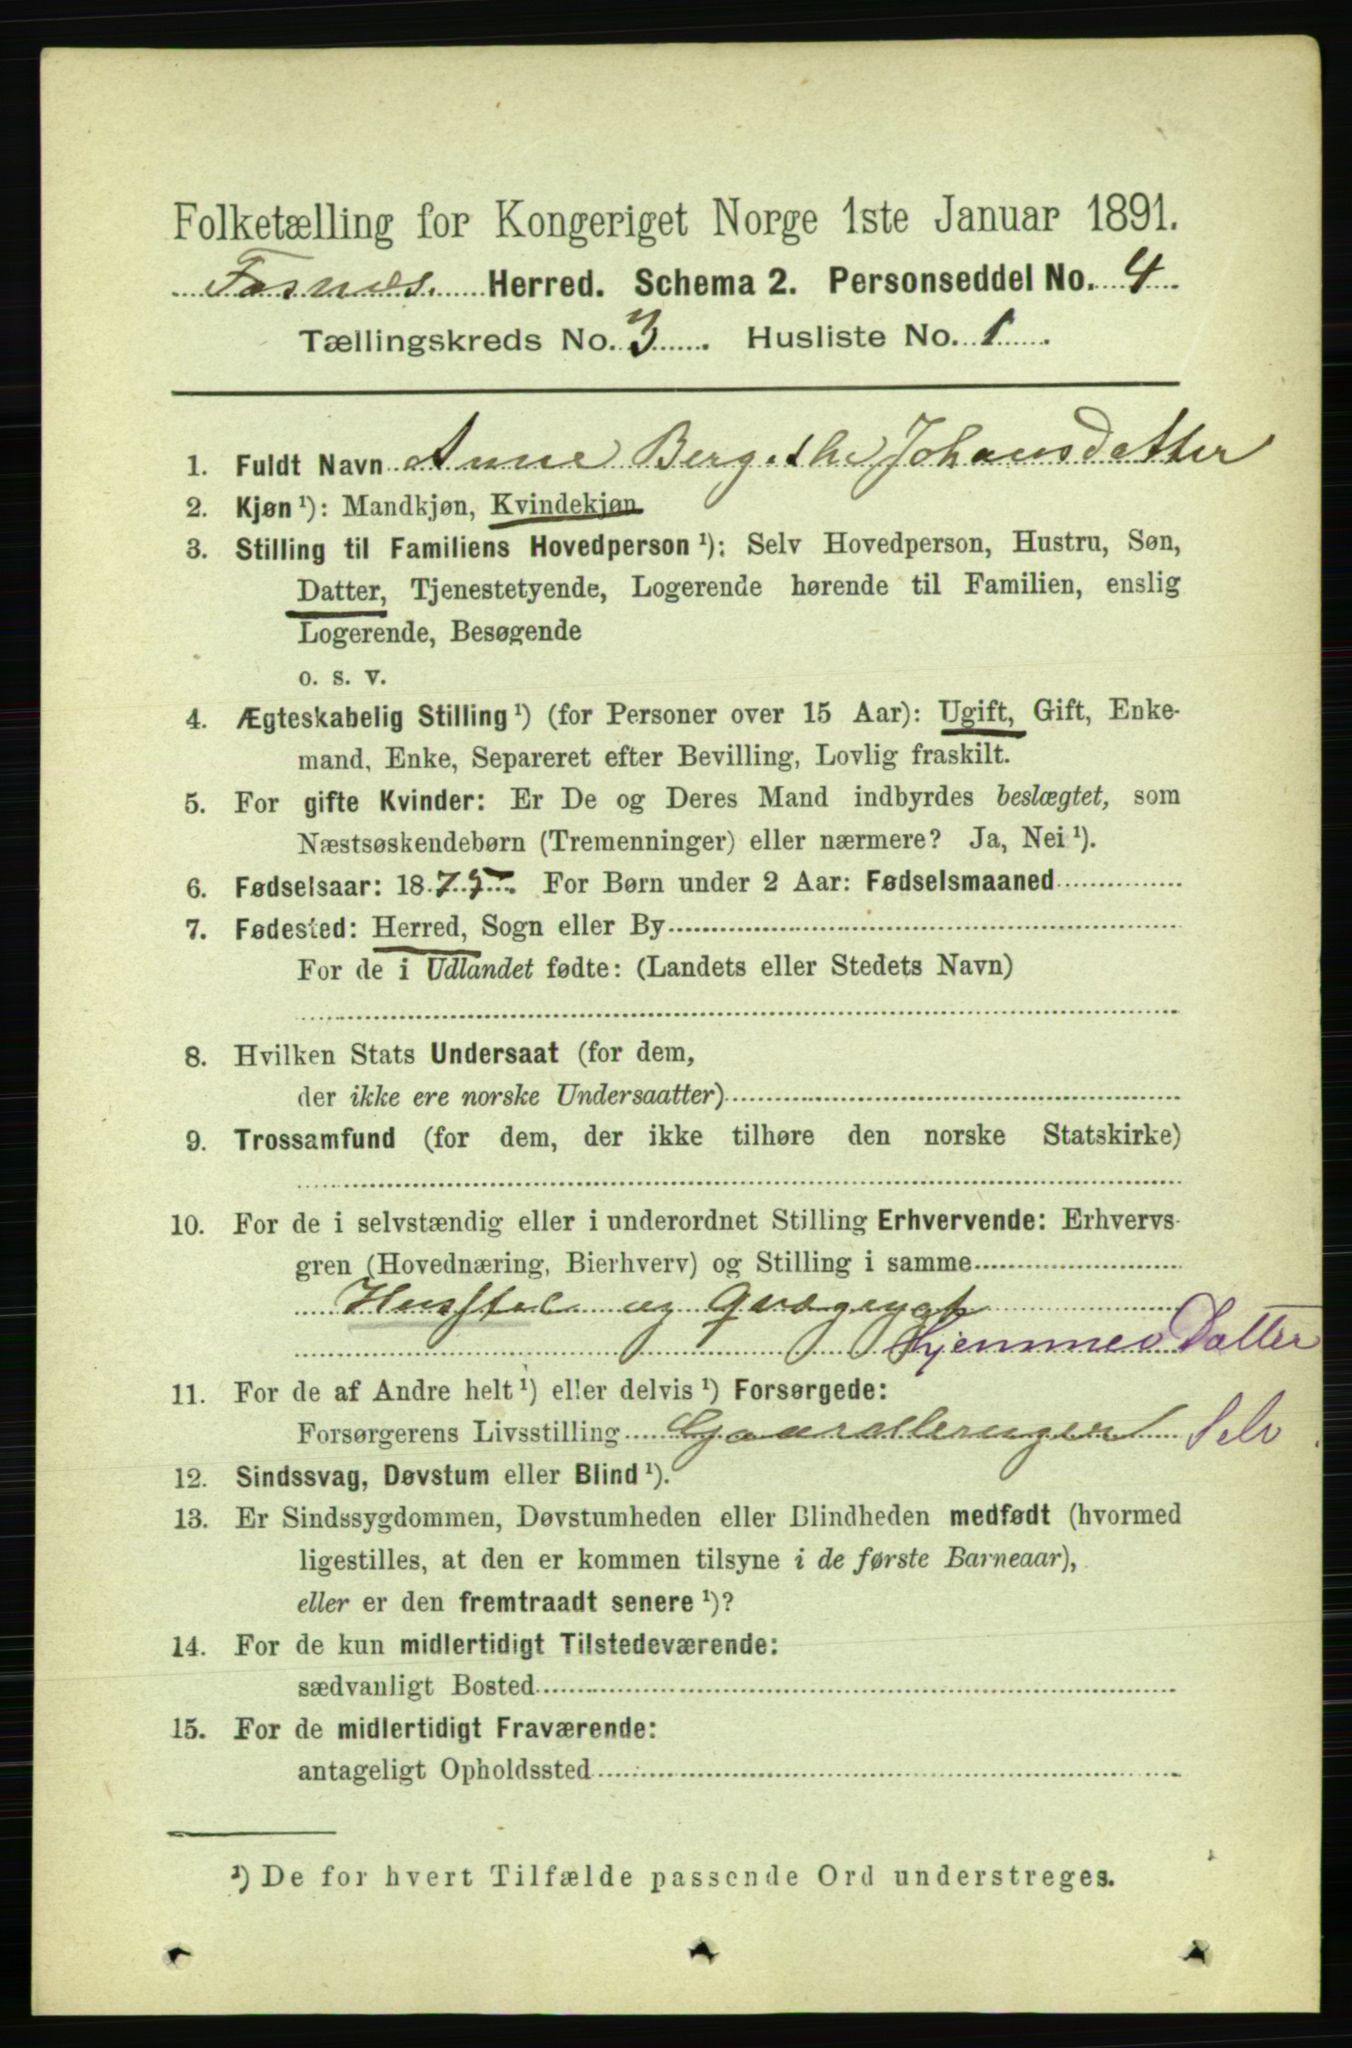 Folketælling for Kongeriget Norge 1ste Januar 1891.
Fosnes. Herred. Schema 2. Personseddel No. 4
Tællingskreds No. 3. Husliste No. 1.
1. Fuldt Navn Anne Bergithe Johansdatter
2. Kjøn ¹): Mandkjøn, Kvindekjøn
3. Stilling til Familiens Hovedperson ¹): Selv Hovedperson, Hustru, Søn,
Datter, Tjenestetyende, Logerende hørende til Familien, enslig
Logerende, Besøgende
o. s. v.
4. Ægteskabelig Stilling ¹) (for Personer over 15 Aar): Ugift, Gift, Enke-
mand, Enke, Separeret efter Bevilling, Lovlig fraskilt.
5. For gifte Kvinder: Er De og Deres Mand indbyrdes beslægtet, som
Næstsøskendebørn (Tremenninger) eller nærmere? Ja, Nei ¹).
6. Fødselsaar: 1875. For Børn under 2 Aar: Fødselsmaaned
7. Fødested: Herred, Sogn eller By
For de i Udlandet fødte: (Landets eller Stedets Navn)
8. Hvilken Stats Undersaat (for dem,
der ikke ere norske Undersaatter)
9. Trossamfund (for dem, der ikke tilhøre den norske Statskirke)
10. For de i selvstændig eller i underordnet Stilling Erhvervende: Erhvervs-
gren (Hovednæring, Bierhverv) og Stilling i samme
Husstel og
Hjemmev Datter
11. For de af Andre helt ¹) eller delvis ¹) Forsørgede:
Forsørgerens Livsstilling Gaardbruger Selv
12. Sindssvag, Døvstum eller Blind ¹).
13. Er Sindssygdommen, Døvstumheden eller Blindheden medfødt (hvormed
ligestilles, at den er kommen tilsyne i de første Barneaar),
eller er den fremtraadt senere ¹)?
14. For de kun midlertidigt Tilstedeværende:
sædvanligt Bosted
15. For de midlertidigt Fraværende:
antageligt Opholdssted
¹) De for hvert Tilfælde passende Ord understreges.